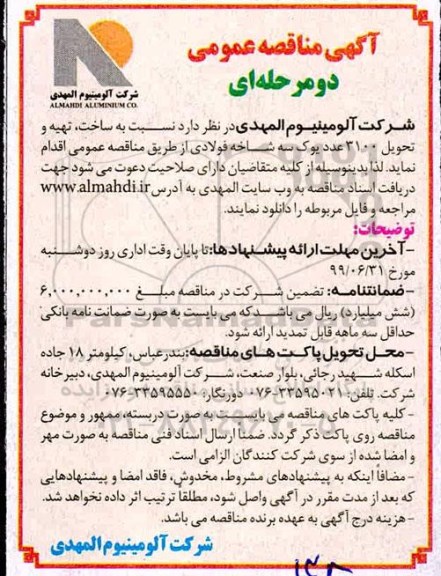 آگهی مناقصه عمومی
دو مرحله‌ای
شرکت آلومینیوم المهدی
ALMAHDI ALUMINIUM CO.
شرکت آلومینیوم المهدی در نظر دارد نسبت به ساخت، تهیه و
تحویل ۳۱۰۰ عدد یوک سه شاخه فولادی از طریق مناقصه عمومی اقدام
نماید. لذا بدینوسیله از کلیه متقاضیان دارای صلاحیت دعوت می شود جهت
دریافت اسناد مناقصه به وب سایت المهدی به آدرس www.almahdi.ir
مراجعه و فایل مربوطه را دانلود نمایند.
توضیحات:
- آخرین مهلت ارائه پیشنهادها: تا پایان وقت اداری روز دوشنبه
مورخ ۹۹/۰۶/۳۱
- ضمانتنامه: تضمین شرکت در مناقصه مبلغ ۶,۰۰۰,۰۰۰,۰۰۰
(شش میلیارد) ریال می باشد که می بایست به صورت ضمانت نامه بانکی
حداقل سه ماهه قابل تمدید ارائه شود.
- محل تحویل پاکت های مناقصه: بندرعباس، کیلومتر ۱۸ جاده
اسکله شهید رجائی، بلوار صنعت، شرکت آلومینیوم المهدی، دبیرخانه
شرکت. تلفن: ۳۳۵۹۵۰۲۱-۰۷۶ دورنگار: ۳۳۵۹۵۵۵۰-۰۷۶
- کلیه پاکت های مناقصه می بایست به صورت دربسته، ممهور و موضوع
مناقصه روی پاکت ذکر گردد. ضمناً ارسال اسناد فنی مناقصه به صورت مهر
و امضا شده از سوی شرکت کنندگان الزامی است.
- مضافاً اینکه به پیشنهادهای مشروط، مخدوش، فاقد امضا و پیشنهادهایی
که بعد از مدت مقرر در آگهی واصل شود، مطلقاً ترتیب اثر داده نخواهد شد.
- هزینه درج آگهی به عهده برنده مناقصه می باشد.
شرکت آلومینیوم المهدی